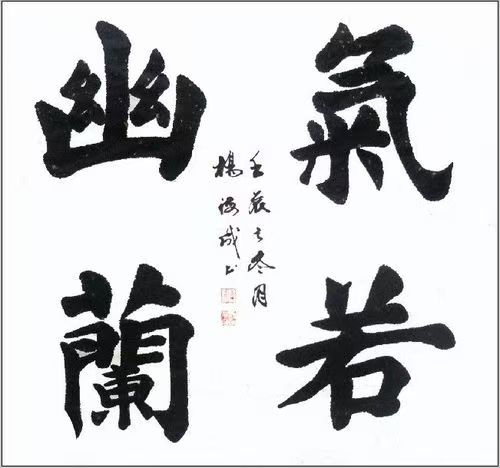 氣若
幽蘭
壬辰之冬月
楊海成書